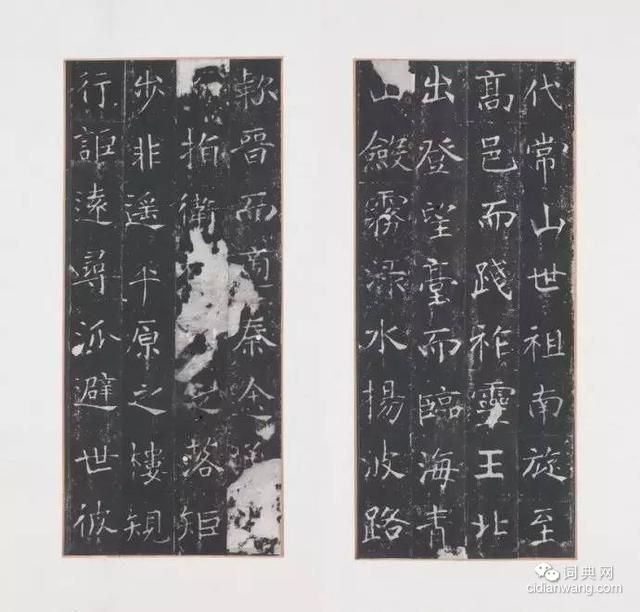 代常山世祖南旋至
高邑而踐祚靈王北
出登望臺而臨海青
山斂霧淥水揚波路
款晉而秦
指衛之落矩
步非遥平原之樓規
行詎遠尋泒避世彼
词典网
cidianwang.com